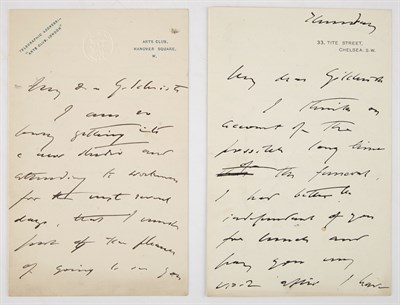 TELEGRAPHIC ADDRESS—
"ARTS CLUB, LONDON"
ARTS CLUB,
HANOVER SQUARE,
W.
My dear Goldsmith
I am so
busy getting into
a new studio and
attending to workmen
for the next several
days, that I must
put off the pleasure
of going to see you
Thursday
33, TITE STREET,
CHELSEA, S.W.
My dear Goldsmith
I think on
account of the
possible long time
of the funeral,
I had better be
independent of you
for lunch and
pay you my
visit after I have